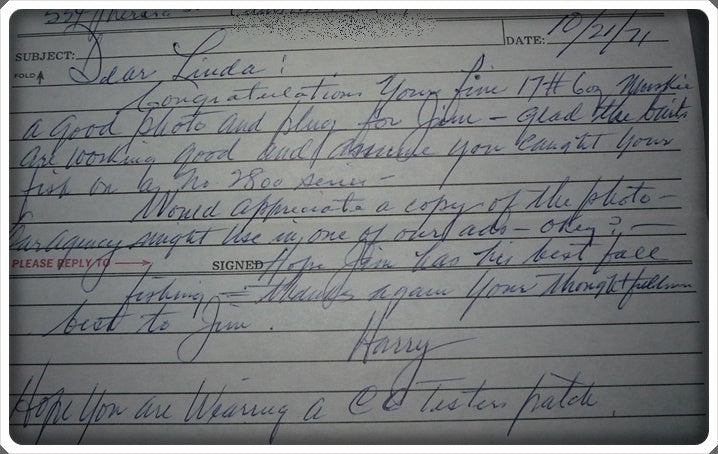 DATE: 10/21/71
SUBJECT:
FOLD
Dear Linda!
Congratulations Your fine 17# 6oz Muskie
a good photo and plug for Jim - glad the baits
are working good and assume you caught your
fish on a No. 2800 series -
Would appreciate a copy of the photo -
our agency might use in one of our ads - okey? -
PLEASE REPLY TO → SIGNED Hope Jim has his best fall
fishing = thanks again your thoughtfulness
best to Jim.
Harry
Hope You are Wearing a CC Testers patch.